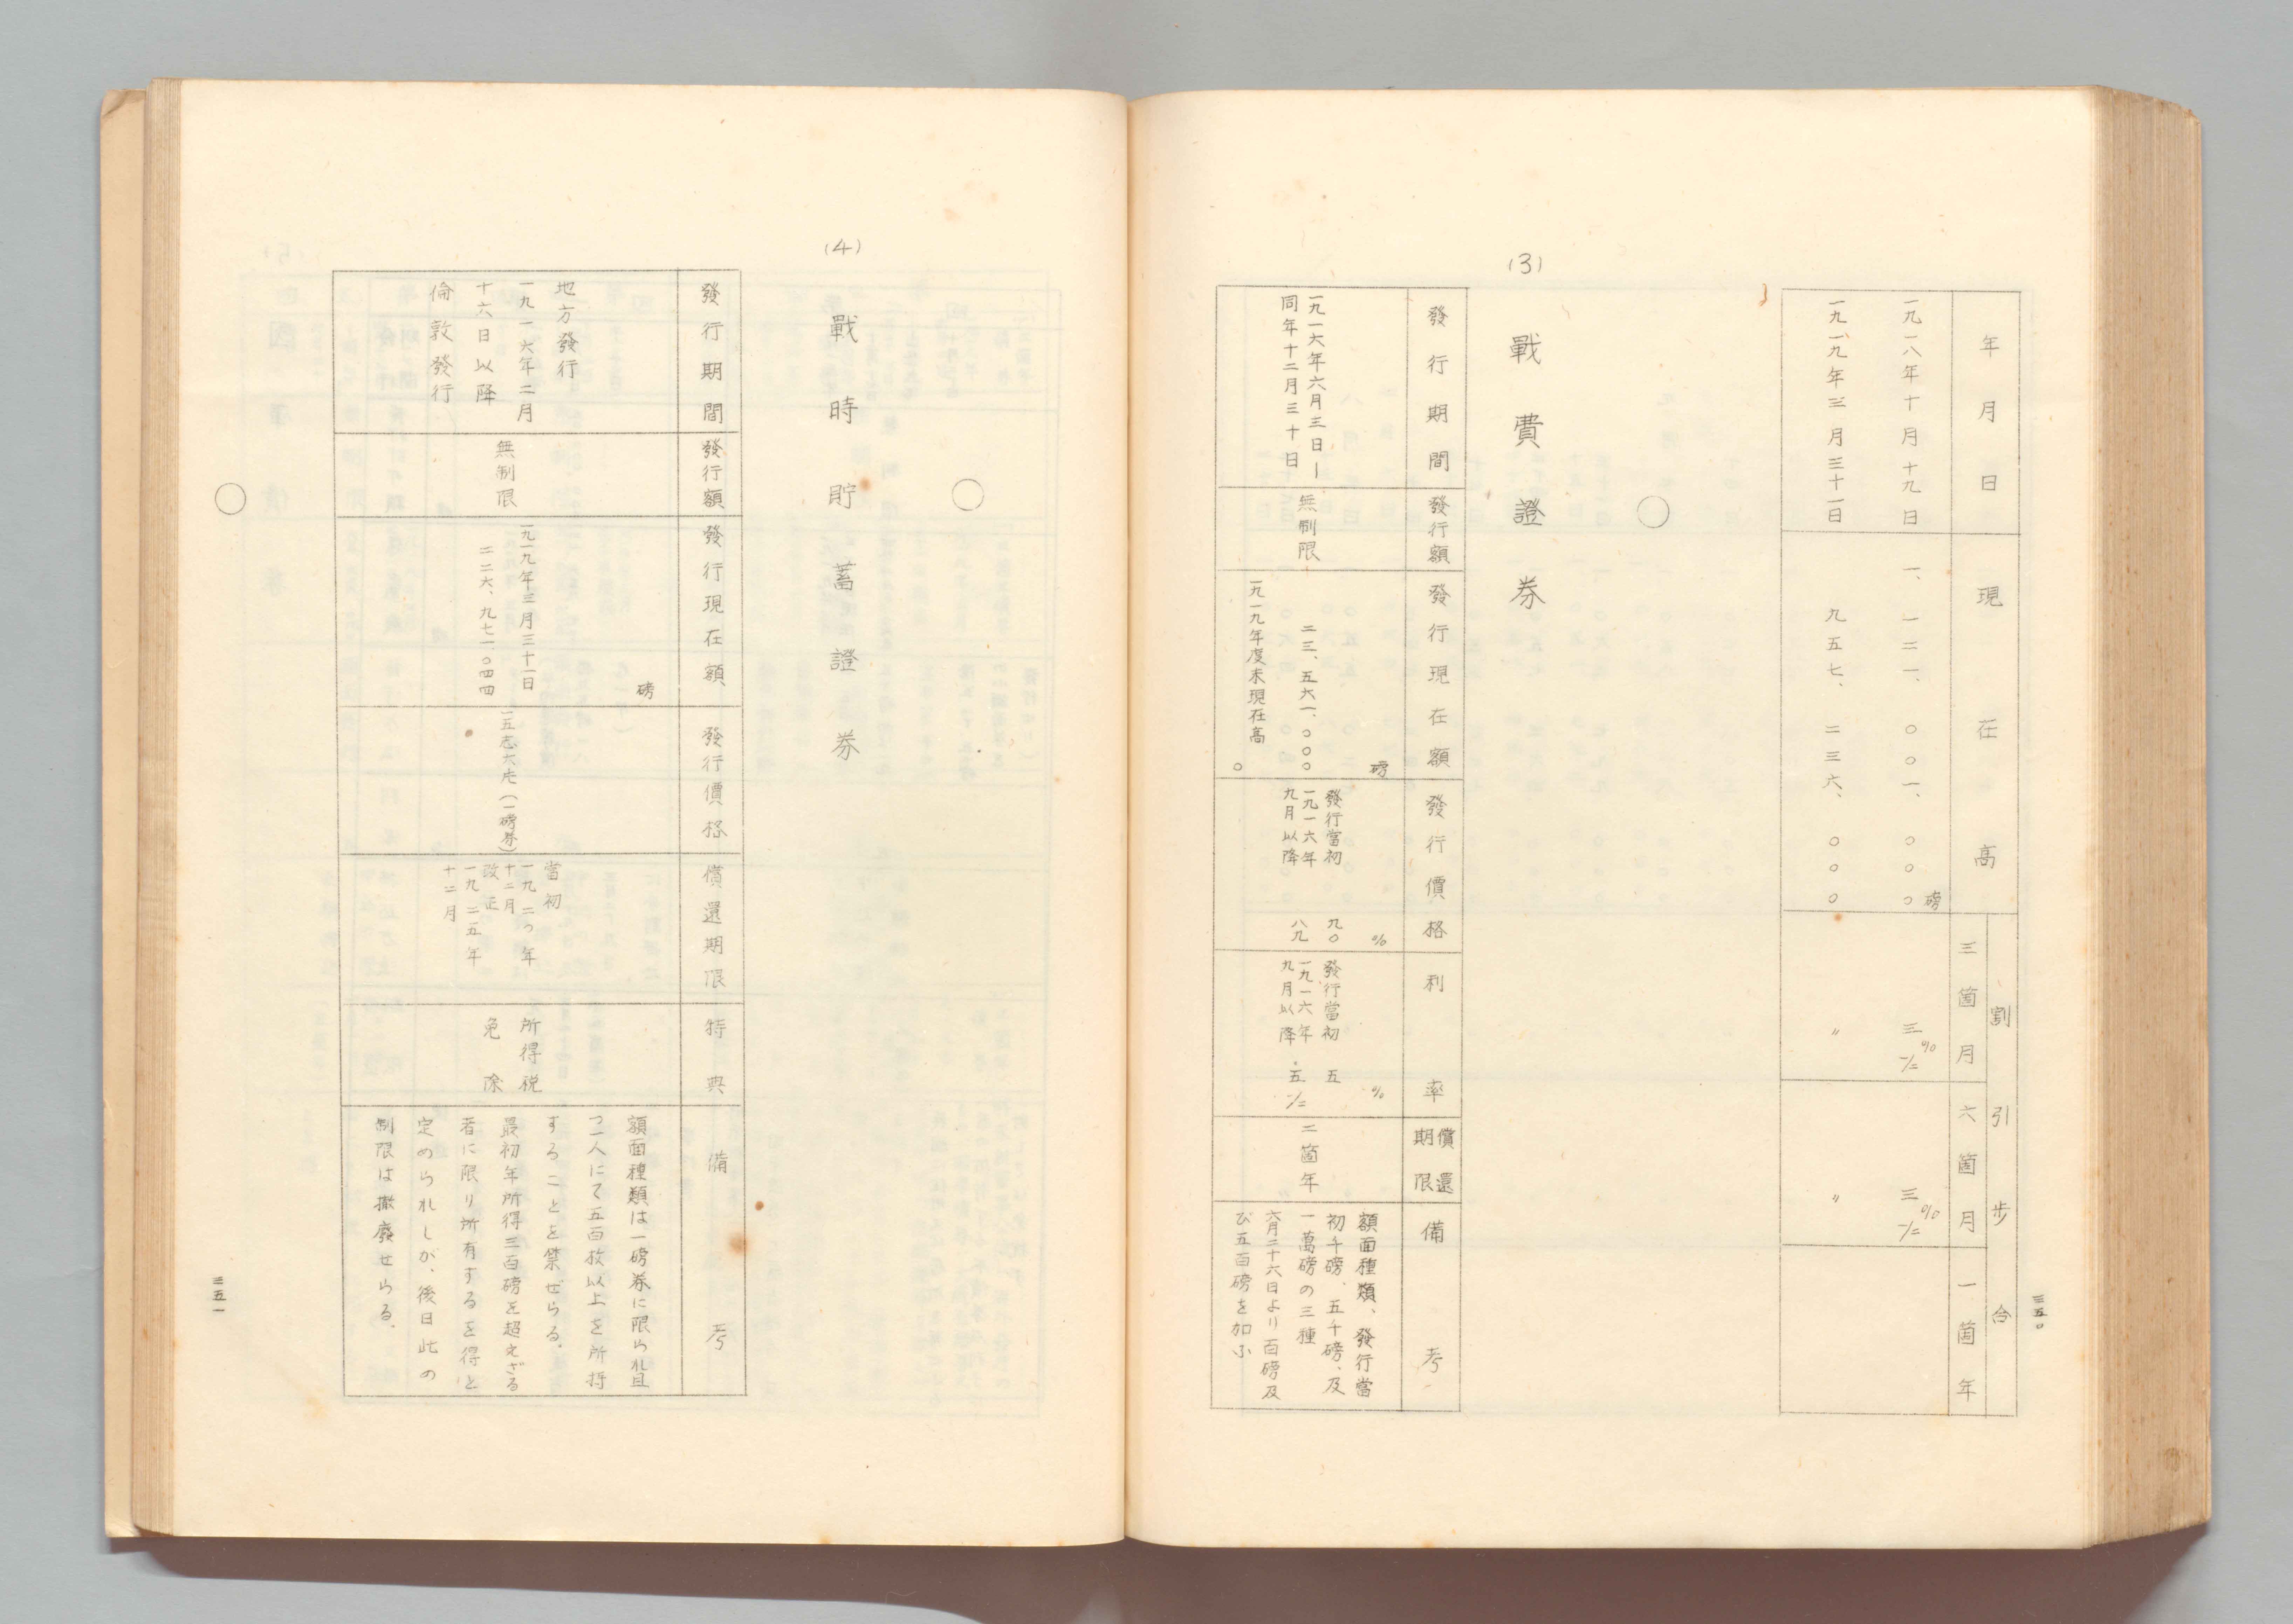 三五〇
年月日
現在高
割引歩合
三箇月
六箇月
一箇年
磅
一九一八年十月十九日
一、一二一、〇〇一、〇〇〇
三%1/2
三%1/2
一九一九年三月三十一日
九五七、二三六、〇〇〇
〃
〃
(3)
戰費證券
發行期間
發行額
發行現在額
發行價格
利率
償還期限
備考
一九一六年六月三日―
同年十二月三十日
無制限
磅
二三、五六一、〇〇〇
一九一九年度末現在高
〇
%
發行當初 九〇
一九一六年
九月以降 八九
%
發行當初 五
一九一六年
九月以降 五1/2
二箇年
額面種類、發行當
初千磅、五千磅、及
一萬磅の三種
六月二十六日より百磅及
び五百磅を加ふ
(4)
戰時貯蓄證券
發行期間
發行額
發行現在額
發行價格
償還期限
特典
備考
地方發行
一九一六年二月
十六日以降
倫敦發行
無制限
磅
一九一九年三月三十一日
二二六、九七一、〇四四
一五志六片(一磅券)
當初
一九二〇年
十二月
改正
一九二五年
十二月
所得税
免除
額面種類は一磅券に限られ且
つ一人にて五百枚以上を所持
することを禁ぜらる.
最初年所得三百磅を超えざる
者に限り所有するを得と
定められしが、後日此の
制限は撤廢せらる.
三五一